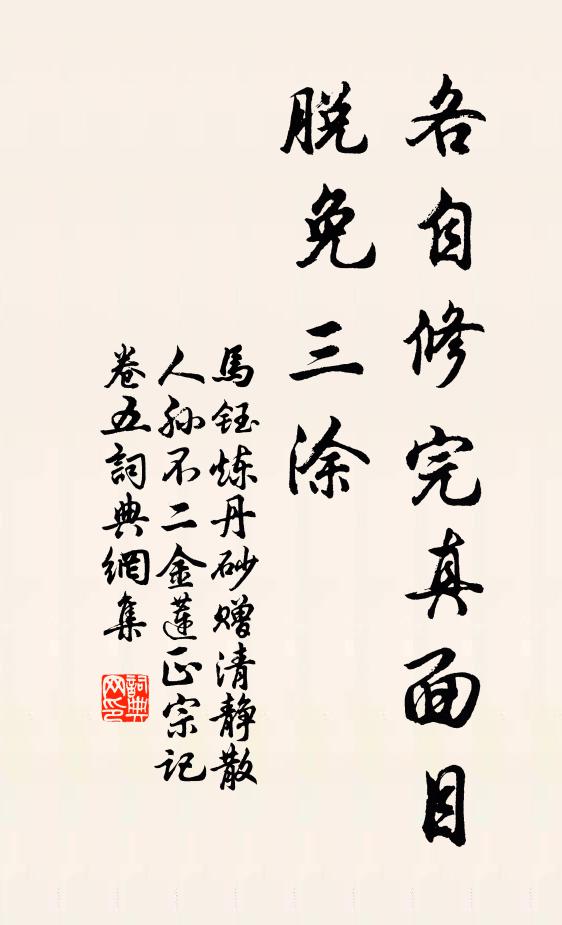 各自修完真面目
脱免三涂
馬鈺炼丹砂赠清静散
人孙不二金蓮正宗记
卷五詞典網集
詞典网印